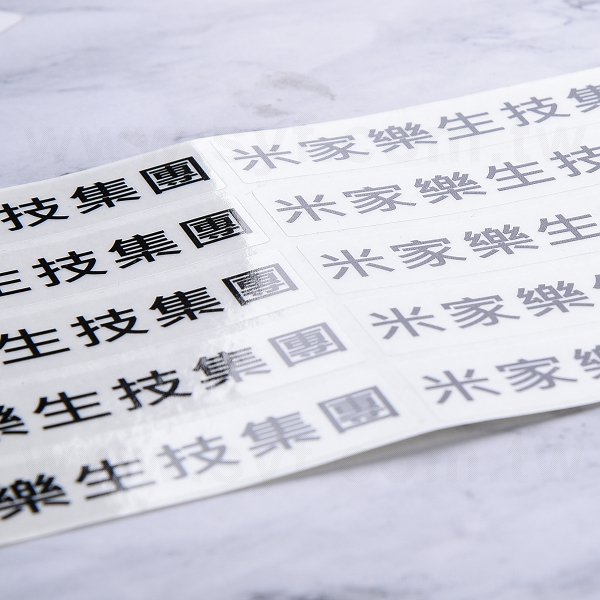 技集團 米家樂生技集
生技集團 米家樂生技
生技集團 米家樂生
樂生技集團 米家樂生
樂生技集團 米家樂